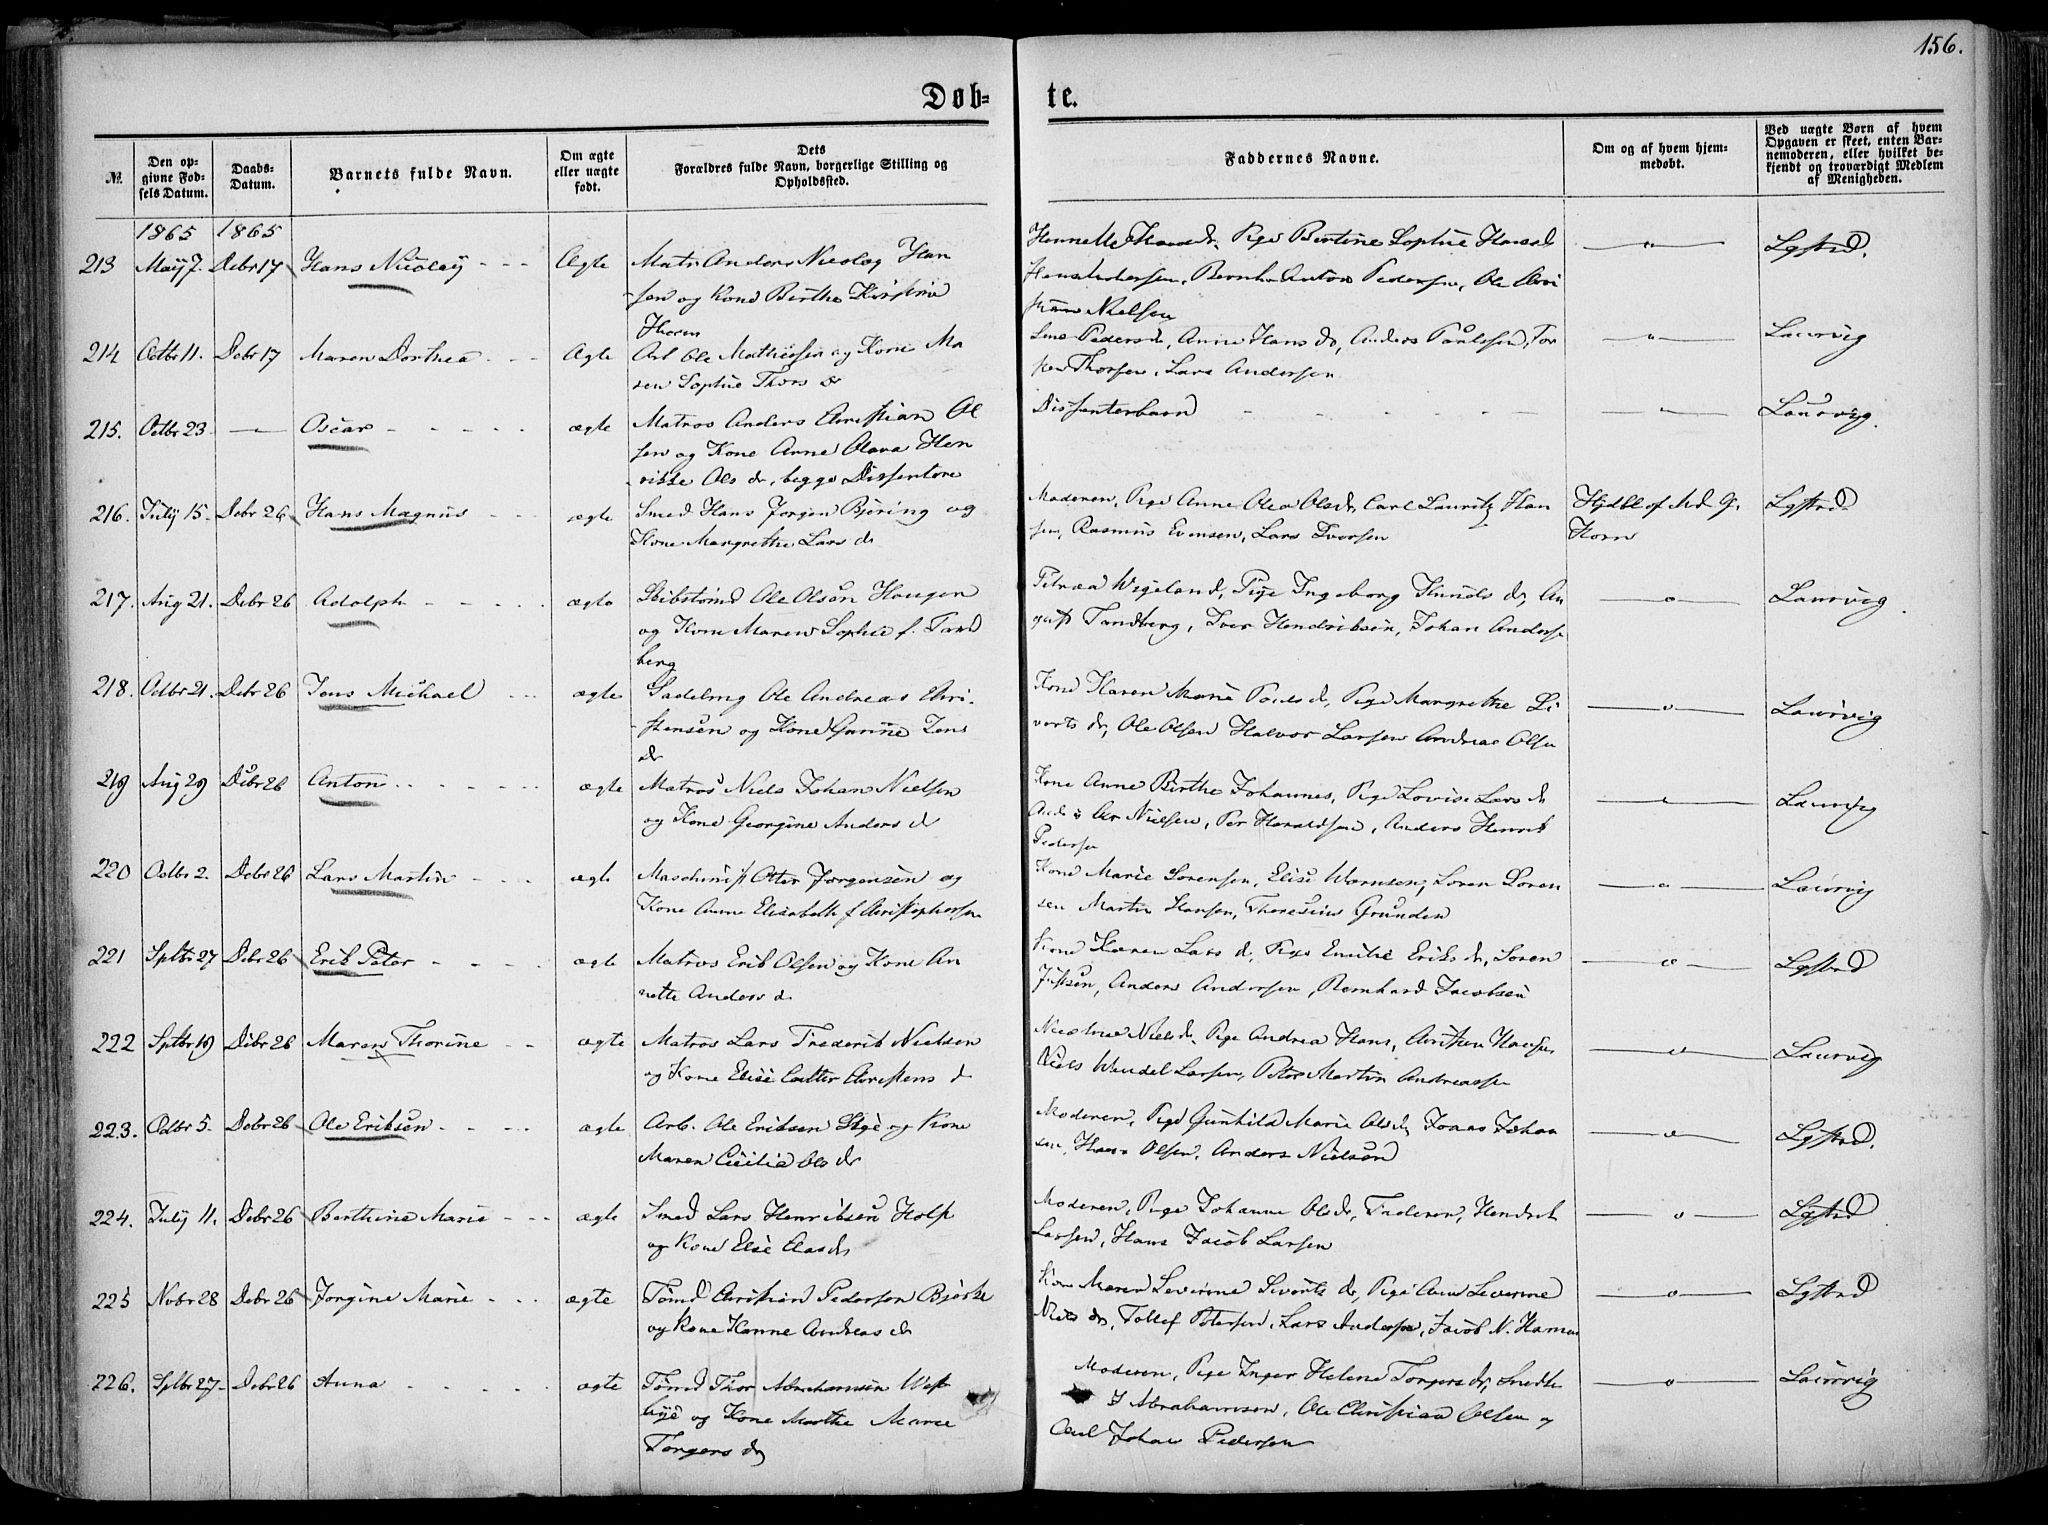 156.
Døb= te.
№.
Den op-
givne Fød-
sels Datum.
Daabs-
Datum.
Barnets fulde Navn.
Om ægte
eller uægte
født.
Dets
Forældres fulde Navn, borgerlige Stilling og
Opholdssted.
Faddernes Navne.
Om og af hvem hjem-
medøbt.
Ved uægte Børn af hvem
Opgaven er skeet, enten Bar-
nemoderen, eller hvilket be-
kjendt og troværdigt Medlem
af Menigheden.
1865 1865
213 Maij 7. Debr 17 Hans Nicolaij - - - Ægte Matr Anders Nicolay Han
sen og Kone Birthe
Thoren
Pige Bertine Sophie
Pedersen, Ole Chri
Nielsen
Lgstrd.
214 Octbr 11. Debr 17 Maren Dorthea - - - Ægte Arb Ole Mathiesen og Kone Ma
ren Sophie Thors dr
Pedersdr, Anne Hans dr, Anders Paulsen, Tor
Thorsen, Lars Andersen
Laurvig
215. Octbr 23 — Oscar - - - - - ægte Matros Anders Christian Ol
sen og Kone Anne Olava Hen
rikke Ols dr, begge Dissentere
Dissenterbarn - - - - -
Laurvig.
216. July 15 Debr 26 Hans Magnus - - - ægte Smed Hans Jørgen Bjøring og
Kone Margrethe Lars dr
Moderen, Pige Anne Olea Olsdr, Carl Lauritz Han
sen, Rasmus Evensen, Lars Iversen
Hjdbt af Md G.
Horn
Lgstrd
217. Aug 21. Debr 26 Adolph - - - - ægte Skibstømd Ole Olsen Haugen
og Kone Maren Sophie f. Tand
berg
Petrea Wigeland, Pige Ingeborg Knuds dr, Au
gust Tandberg, Iver Hendriksen, Johan Anders
Laurvig.
218. Octbr 21. Debr 26 Jens Michael - - - ægte Sadelmg Ole Andreas Chri-
stensen og Kone Hanne Jens
dr
Kone Karen Marie Pouls dr, Pige Margrethe Si
verts dr, Ole Olsen Halvor Larsen Andreas Olsen
Laurvig
219 Aug 29 Debr 26 Anton - - - - - ægte Matros Niels Johan Nielsen
og Kone Georgine Anders d
Kone Anne Birthe Johannes, Pige Lovise Lars d
Nielsen, Per Haraldsen, Anders Henrik
Pedersen
Laurvig
220 Octbr 2. Debr 26 Lars Martin - - - ægte Maschinist Otter Jørgensen og
Kone Anne Elisabeth f Christophersen
Kone Marie Sørensen, Elise Wernsen, Søren Søren
sen Martin Hansen, Theresius Grunden
Laurvig
221 Sptbr 27 Debr 26 Erik Peter - - - - ægte Matros Erik Olsen og Kone An
nette Anders d
Kone Karen Lars d, Pige Emilie Eriks dr, Søren
Justsen, Anders Andersen, Bernhard Jacobsen
Lgstrd
222 Sptbr 19 Debr 26 Maren Thorine - - ægte Matros Lars Frederik Nielsen
og Kone Elise Cathr Christens d
Nicoline Niels dr Pige Andrea Hans, Christen Hansen
Niels Wendel Larsen, Peter Martin Andreassen
Laurvig
223. Octbr 5. Debr 26 Ole Eriksen - - - - ægte Arb. Ole Eriksen Stge og Kone
Maren Cicilia Ols dr
Moderen, Pige Gunhild Marie Olsdr, Jonas Johan
sen, Hans Olsen, Anders Nielsen
Lgstrd.
224. July 11. Debr 26 Berthine Marie - - - ægte Smed Lars Henriksen Holst
og Kone Else Clasdr
Moderen, Pige Johanne Olsdr, Faderen, Hendrik
Larsen, Hans Jacob Larsen
Lgstrd
225 Nvbr 28 Debr 26 Jorgine Marie - - - ægte Tømd Christian Pedersen Bjerke
og Kone Hanne Andreas dr
Kone Maren Severine Siverts dr, Pige Anne Severine
Niels dr, Tollef Petersen, Lars Andersen, Jacob N. Hansen
Lgstrd
226. Sptbr 27 Debr 26 Anna - - - - - ægte Tømd Thor Abrahamsen West
bye og Kone Marthe Marie
Torgers dr
Moderen, Pige Inger Helene Torgers dr, Smedk
J Abrahamsen, Ole Christian Olsen og
Carl Johan Pedersen
Laurvig